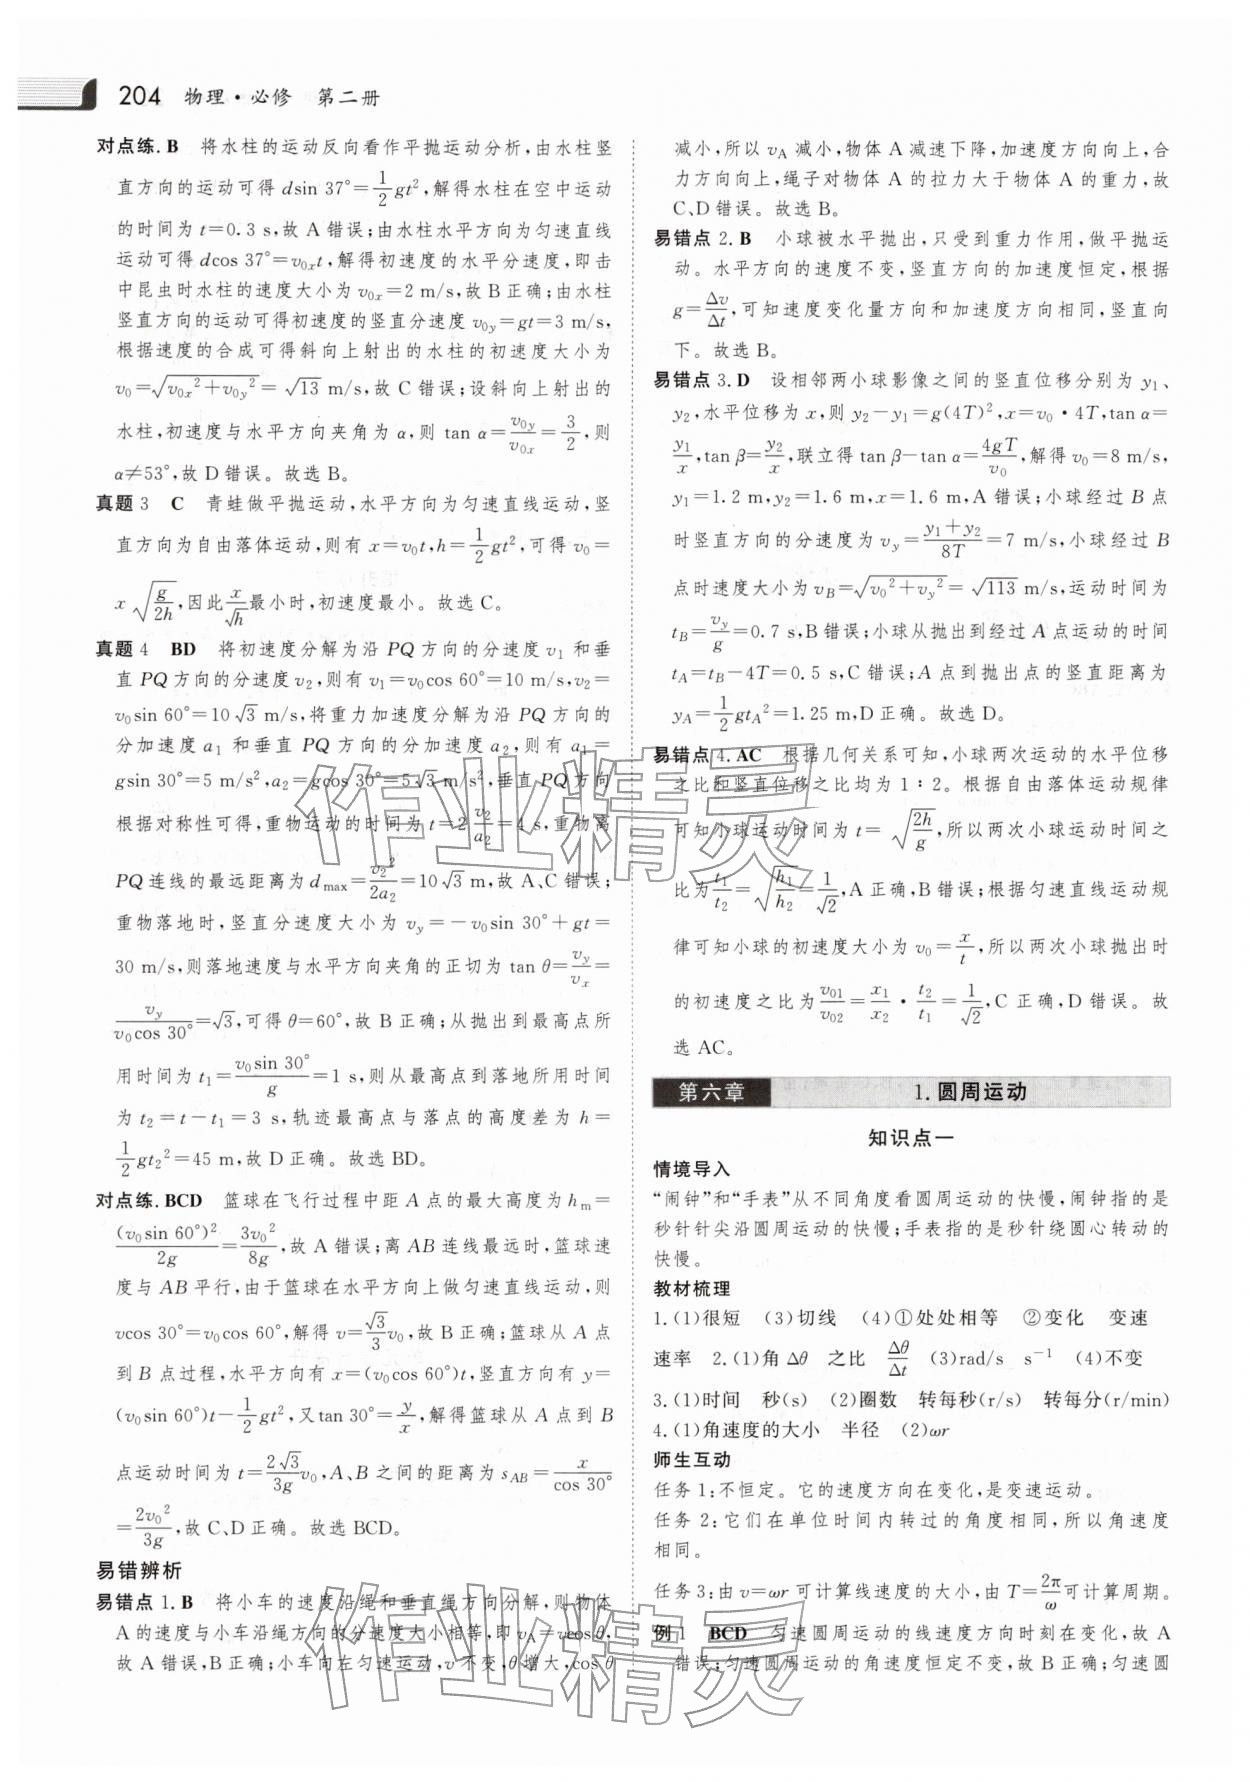 204 物理·必修 第二册
对点练.B 将水柱的运动反向看作平抛运动分析,由水柱竖
直方向的运动可得 dsin 37°=1/2gt²,解得水柱在空中运动
的时间为 t=0.3 s,故 A 错误;由水柱水平方向为匀速直线
运动可得 dcos 37°=v₀ₓt,解得初速度的水平分速度,即击
中昆虫时水柱的速度大小为 v₀ₓ=2 m/s,故 B 正确;由水柱
竖直方向的运动可得初速度的竖直分速度 v₀y=gt=3 m/s,
根据速度的合成可得斜向上射出的水柱的初速度大小为
v₀=√(v₀ₓ²+v₀y²)=√13 m/s,故 C 错误;设斜向上射出的
水柱,初速度与水平方向夹角为 α,则 tan α=v₀y/v₀ₓ=3/2,则
α≠53°,故 D 错误。故选 B。
真题 3 C 青蛙做平抛运动,水平方向为匀速直线运动,竖
直方向为自由落体运动,则有 x=v₀t,h=1/2gt²,可得 v₀=
x√(g/2h),因此x/√h最小时,初速度最小。故选 C。
真题 4 BD 将初速度分解为沿 PQ 方向的分速度 v₁ 和垂
直 PQ 方向的分速度 v₂,则有 v₁=v₀cos 60°=10 m/s,v₂=
v₀sin 60°=10√3 m/s,将重力加速度分解为沿 PQ 方向的
分加速度 a₁ 和垂直 PQ 方向的分加速度 a₂,则有 a₁=
gsin 30°=5 m/s²,a₂=gcos 30°=5√3 m/s²,垂直 PQ 方向
根据对称性可得,重物运动的时间为 t=2v₂/a₂=4 s,重物离
PQ 连线的最远距离为 dmax=v₂²/2a₂=10√3 m,故 A、C 错误;
重物落地时,竖直分速度大小为 vy=-v₀sin 30°+gt=
30 m/s,则落地速度与水平方向夹角的正切为 tan θ=vy/vₓ=
vy/(v₀cos 30°)=√3,可得 θ=60°,故 B 正确;从抛出到最高点所
用时间为 t₁=v₀sin 30°/g=1 s,则从最高点到落地所用时间
为 t₂=t-t₁=3 s,轨迹最高点与落点的高度差为 h=
1/2gt₂²=45 m,故 D 正确。故选 BD。
对点练.BCD 篮球在飞行过程中距 A 点的最大高度为 hm=
(v₀sin 60°)²/2g=3v₀²/8g,故 A 错误;离 AB 连线最远时,篮球速
度与 AB 平行,由于篮球在水平方向上做匀速直线运动,则
vcos 30°=v₀cos 60°,解得 v=√3/3v₀,故 B 正确;篮球从 A 点
到 B 点过程,水平方向有 x=(v₀cos 60°)t,竖直方向有 y=
(v₀sin 60°)t-1/2gt²,又 tan 30°=y/x,解得篮球从 A 点到 B
点运动时间为 t=2√3/3g v₀,A、B 之间的距离为 sAB=x/cos 30°
=2v₀²/3g,故 C、D 正确。故选 BCD。
易错辨析
易错点 1.B 将小车的速度沿绳和垂直绳方向分解,则物体
A 的速度与小车沿绳方向的分速度大小相等,即 vA=vcos θ,
故 A 错误;小车向左匀速运动,v 不变,θ 增大,cos θ
减小,所以 vA 减小,物体 A 减速下降,加速度方向向上,合
力方向向上,绳子对物体 A 的拉力大于物体 A 的重力,故
C、D 错误。故选 B。
易错点 2.B 小球被水平抛出,只受到重力作用,做平抛运
动。水平方向的速度不变,竖直方向的加速度恒定,根据
g=Δv/Δt,可知速度变化量方向和加速度方向相同,竖直向
下。故选 B。
易错点 3.D 设相邻两小球影像之间的竖直位移分别为 y₁、
y₂,水平位移为 x,则 y₂-y₁=g(4T)²,x=v₀·4T,tan α=
y₁/x,tan β=y₂/x,联立得 tan β-tan α=4gT/v₀,解得 v₀=8 m/s,
y₁=1.2 m,y₂=1.6 m,x=1.6 m,A 错误;小球经过 B 点
时竖直方向的分速度为 vy=(y₁+y₂)/8T=7 m/s,小球经过 B
点时速度大小为 vB=√(v₀²+vy²)=√113 m/s,运动时间为
tB=vy/g=0.7 s,B 错误;小球从抛出到经过 A 点运动的时间
tA=tB-4T=0.5 s,C 错误;A 点到抛出点的竖直距离为
yA=1/2gtA²=1.25 m,D 正确。故选 D。
易错点 4.AC 根据几何关系可知,小球两次运动的水平位移
之比和竖直位移之比均为 1∶2。根据自由落体运动规律
可知小球运动时间为 t=√(2h/g),所以两次小球运动时间之
比为t₁/t₂=√(h₁/h₂)=1/√2,A 正确,B 错误;根据匀速直线运动规
律可知小球的初速度大小为 v₀=x/t,所以两次小球抛出时
的初速度之比为v₀₁/v₀₂=x₁/x₂·t₂/t₁=1/√2,C 正确,D 错误。故
选 AC。
第六章 1.圆周运动
知识点一
情境导入
“闹钟”和“手表”从不同角度看圆周运动的快慢,闹钟指的是
秒针针尖沿圆周运动的快慢;手表指的是秒针绕圆心转动的
快慢。
教材梳理
1.(1)很短 (3)切线 (4)①处处相等 ②变化 变速
速率 2.(1)角 Δθ 之比 Δθ/Δt (3)rad/s s⁻¹ (4)不变
3.(1)时间 秒(s) (2)圈数 转每秒(r/s) 转每分(r/min)
4.(1)角速度的大小 半径 (2)ωr
师生互动
任务 1:不恒定。它的速度方向在变化,是变速运动。
任务 2:它们在单位时间内转过的角度相同,所以角速度
相同。
任务 3:由 v=ωr 可计算线速度的大小,由 T=2π/ω可计算周期。
例 1 BCD 匀速圆周运动的线速度方向时刻在变化,故 A
错误;匀速圆周运动的角速度恒定不变,故 B 正确;匀速圆
作业精灵
作业精灵